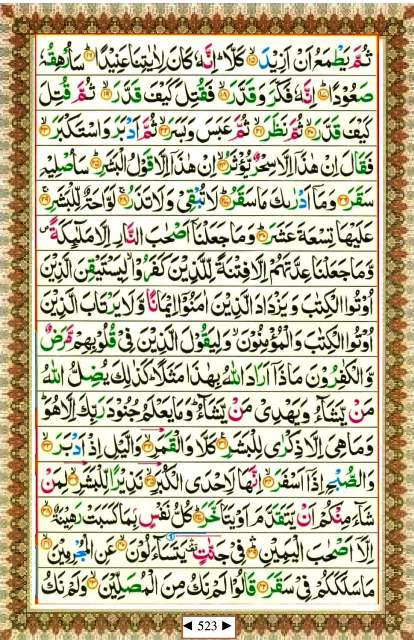 ثُمَّ يَطْمَعُ اَنْ اَزِيْدَ ۙ۝۱۵ كَلَّا ؕ اِنَّهٗ كَانَ لِاٰيٰتِنَا عَنِيْدًا ؕ۝۱۶ سَاُرْهِقُهٗ
صَعُوْدًا ؕ۝۱۷ اِنَّهٗ فَكَّرَ وَ قَدَّرَ ۙ۝۱۸ فَقُتِلَ كَيْفَ قَدَّرَ ۙ۝۱۹ ثُمَّ قُتِلَ
كَيْفَ قَدَّرَ ۙ۝۲۰ ثُمَّ نَظَرَ ۙ۝۲۱ ثُمَّ عَبَسَ وَ بَسَرَ ۙ۝۲۲ ثُمَّ اَدْبَرَ وَ اسْتَكْبَرَ ۙ۝۲۳
فَقَالَ اِنْ هٰذَاۤ اِلَّا سِحْرٌ يُّؤْثَرُ ۙ۝۲۴ اِنْ هٰذَاۤ اِلَّا قَوْلُ الْبَشَرِ ؕ۝۲۵ سَاُصْلِيْهِ
سَقَرَ ۝۲۶ وَ مَاۤ اَدْرٰىكَ مَا سَقَرُ ؕ۝۲۷ لَا تُبْقِيْ وَ لَا تَذَرُ ۚ۝۲۸ لَوَّاحَةٌ لِّلْبَشَرِ ۚۖ۝۲۹
عَلَيْهَا تِسْعَةَ عَشَرَ ؕ۝۳۰ وَ مَا جَعَلْنَاۤ اَصْحٰبَ النَّارِ اِلَّا مَلٰٓىِٕكَةً ۪
وَّ مَا جَعَلْنَا عِدَّتَهُمْ اِلَّا فِتْنَةً لِّلَّذِيْنَ كَفَرُوْا ۙ لِيَسْتَيْقِنَ الَّذِيْنَ
اُوْتُوا الْكِتٰبَ وَ يَزْدَادَ الَّذِيْنَ اٰمَنُوْۤا اِيْمَانًا وَّ لَا يَرْتَابَ الَّذِيْنَ
اُوْتُوا الْكِتٰبَ وَ الْمُؤْمِنُوْنَ ۙ وَ لِيَقُوْلَ الَّذِيْنَ فِيْ قُلُوْبِهِمْ مَّرَضٌ
وَّ الْكٰفِرُوْنَ مَا ذَاۤ اَرَادَ اللّٰهُ بِهٰذَا مَثَلًا ؕ كَذٰلِكَ يُضِلُّ اللّٰهُ
مَنْ يَّشَآءُ وَ يَهْدِيْ مَنْ يَّشَآءُ ؕ وَ مَا يَعْلَمُ جُنُوْدَ رَبِّكَ اِلَّا هُوَ ؕ
وَ مَا هِيَ اِلَّا ذِكْرٰى لِلْبَشَرِ ۝۳۱ كَلَّا وَ الْقَمَرِ ۙ۝۳۲ وَ الَّيْلِ اِذْ اَدْبَرَ ۙ۝۳۳
وَ الصُّبْحِ اِذَاۤ اَسْفَرَ ۙ۝۳۴ اِنَّهَا لَاِحْدَى الْكُبَرِ ۙ۝۳۵ نَذِيْرًا لِّلْبَشَرِ ۙ۝۳۶ لِمَنْ
شَآءَ مِنْكُمْ اَنْ يَّتَقَدَّمَ اَوْ يَتَاَخَّرَ ؕ۝۳۷ كُلُّ نَفْسٍۭ بِمَا كَسَبَتْ رَهِيْنَةٌ ۙ۝۳۸
اِلَّاۤ اَصْحٰبَ الْيَمِيْنِ ؕۛ۝۳۹ فِيْ جَنّٰتٍ ۛ۫ يَتَسَآءَلُوْنَ ۙ۝۴۰ عَنِ الْمُجْرِمِيْنَ ۙ۝۴۱
مَا سَلَكَكُمْ فِيْ سَقَرَ ۝۴۲ قَالُوْا لَمْ نَكُ مِنَ الْمُصَلِّيْنَ ۙ۝۴۳ وَ لَمْ نَكُ
◄ 523 ►